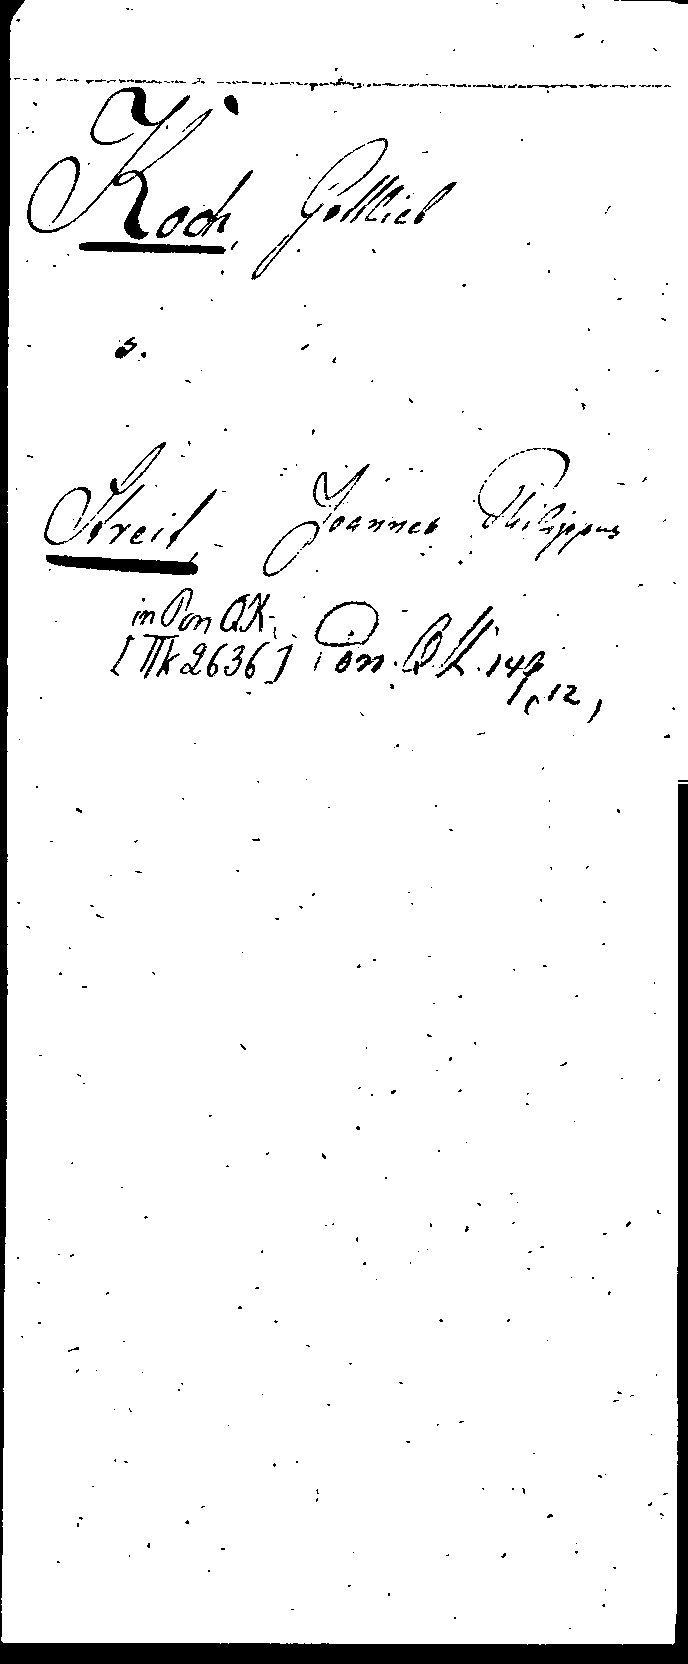 Koch, Gottlieb
s.
Streit, Joannes Philippus
in Pon QK.
[IIk 2636] Pon. QK. 149
(12)